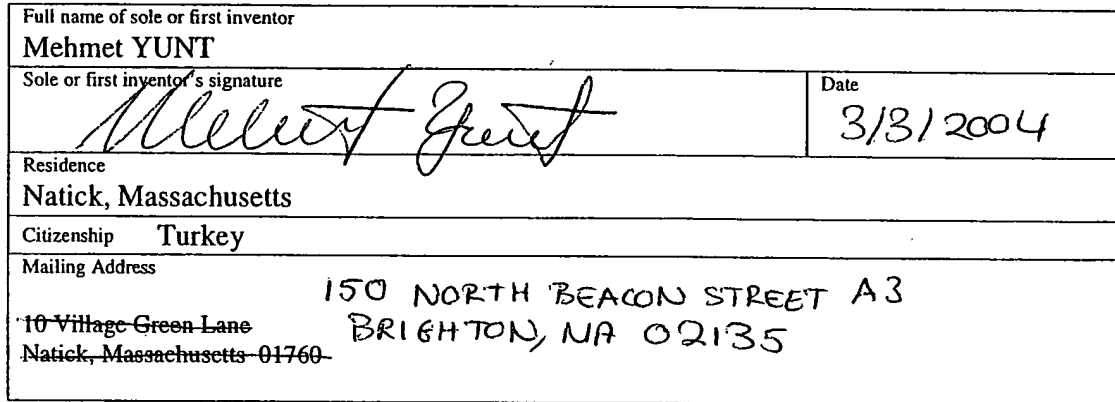 Full name of sole or first inventor
Mehmet YUNT
Sole or first inventor's signature
Mehmet Yunt
Date
3/3/2004
Residence
Natick, Massachusetts
Citizenship Turkey
Mailing Address
150 NORTH BEACON STREET A3
10 Village Green Lane
BRIGHTON, MA 02135
Natick, Massachusetts 01760